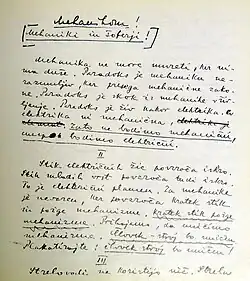 Mehanikom!
Mehaniki in šoferji!
Mehanika ne more umreti, ker ni-
ma duše. Paradoks je mehaniku ne-
razumljiv, ker presega mehanične zako-
ne. Paradoks je skok iz mehanike v živ-
ljenje. Paradoks je živ kakor elektrika.
elektrika ni mehanična
zato ne bodimo mehanični,
bodimo električni.
II
Stik električnih žic povzroča iskro.
Stik mladih vrst povzroča tudi iskro.
To je električni plamen. Za mehaniko
je nevaren, ker povzroča kratek stik
in požge mehanizme. Kratek stik požge
mehanizme. da uničimo
mehanizme. Človek-stroj bo uničen
Plakatirajte: človek stroj bo uničen!
III
Streli ne koristijo nič. Strela